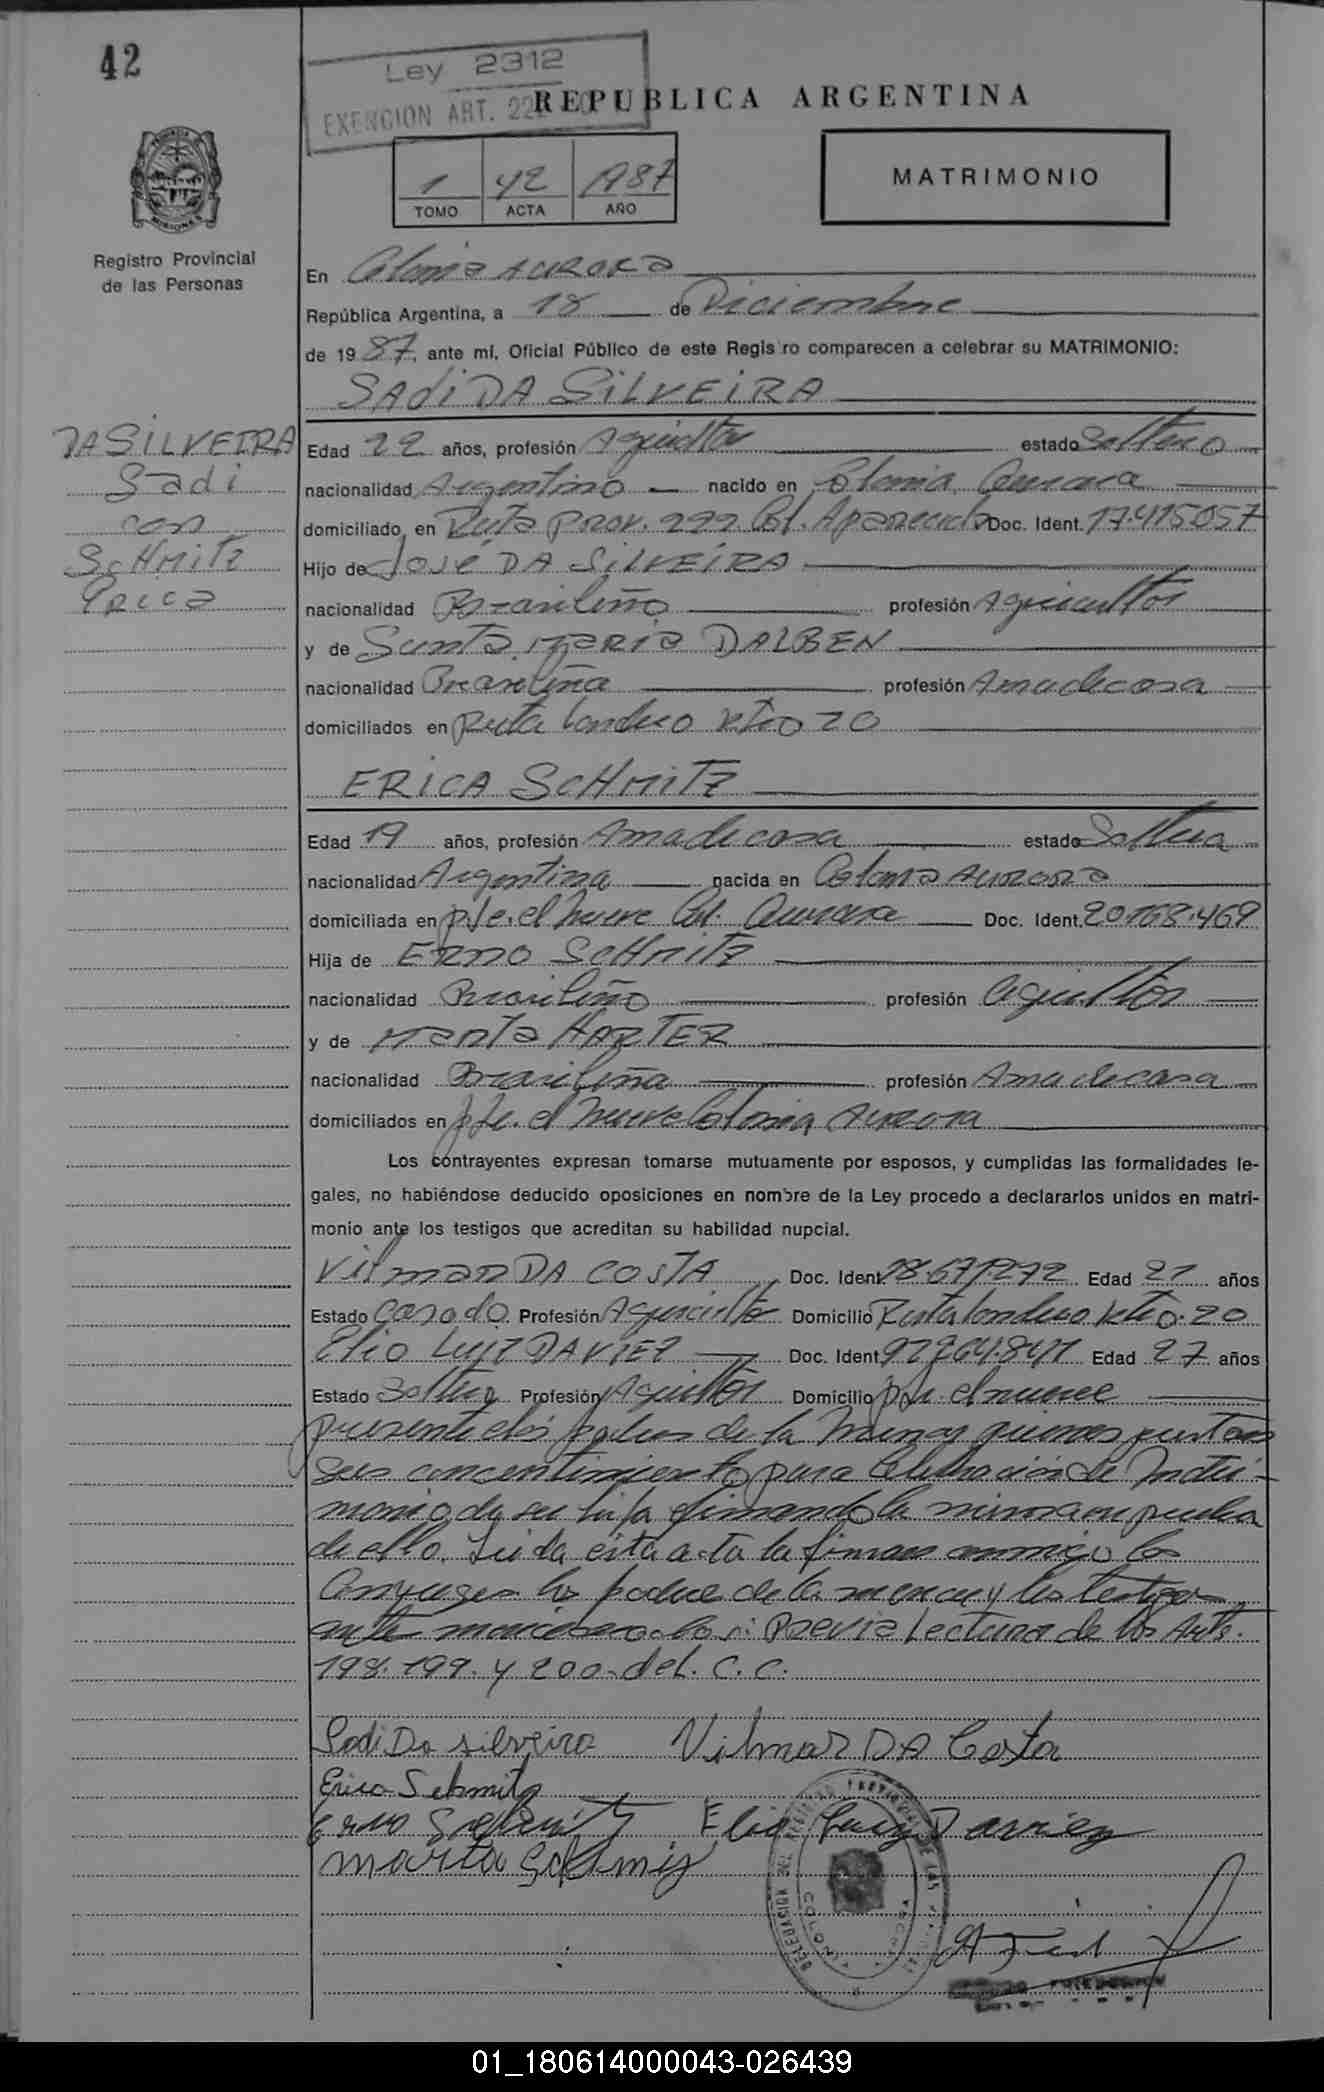 42
Ley 2312
EXENCION ART. 22
REPUBLICA ARGENTINA
1 42 1987
TOMO ACTA AÑO
MATRIMONIO
Registro Provincial
de las Personas
En Colonia Aurora
República Argentina, a 18 de Diciembre
de 1987, ante mí, Oficial Público de este Registro comparecen a celebrar su MATRIMONIO:
SADI DA SILVEIRA
DA SILVEIRA
Sadi
con
SCHMITZ
Erica
Edad 22 años, profesión Agricultor estado Soltero
nacionalidad Argentino nacido en Colonia Aurora
domiciliado en Ruta Prov. 222 Col. Aparecida Doc. Ident. 17.415057
Hijo de José DA SILVEIRA
nacionalidad Brasileño profesión Agricultor
y de Santa Maria DALBEN
nacionalidad Brasileña profesión Amadecasa
domiciliados en Ruta Londero Ktro 20
ERICA SCHMITZ
Edad 19 años, profesión Amadecasa estado Soltera
nacionalidad Argentina nacida en Colonia Aurora
domiciliada en pje. el nueve Col. Aurora Doc. Ident. 20.168.469
Hija de ERNO SCHMITZ
nacionalidad Brasileño profesión Agricultor
y de Marta HARTER
nacionalidad Brasileña profesión Amadecasa
domiciliados en pje. el nueve Colonia Aurora
Los contrayentes expresan tomarse mutuamente por esposos, y cumplidas las formalidades le-
gales, no habiéndose deducido oposiciones en nombre de la Ley procedo a declararlos unidos en matri-
monio ante los testigos que acreditan su habilidad nupcial.
Vilmar DA COSTA Doc. Ident. 18.671272 Edad 21 años
Estado Casado Profesión Agricultor Domicilio Ruta Londero Ktro. 20
Elio Luiz DAVIEZ Doc. Ident. Edad 27 años
Estado Soltero Profesión Agricultor Domicilio pje. el nueve
presente los padres de la menor quienes prestan
sus concentimiento para celebración de Matri-
monio de su hija firmando la misma en prueba
de ello. Leida esta acta la firman conmigo los
Conyuges los padre de la menor y los testigos
ante Previa Lectura de los Arts.
198. 199. y 200. del. C. C.
Sadi Da Silveira Vilmar DA Costa
Erica Schmitz
Erno Schmitz Elio Luiz Daviez
Marta
DELEGACION DEL REGISTRO PROVINCIAL DE LAS
COLONIA
01_180614000043-026439